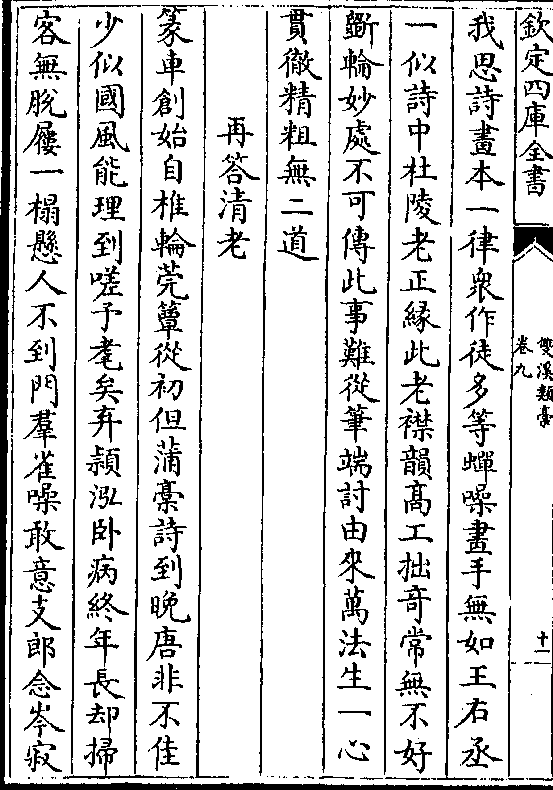 欽定四庫全書
雙溪類稾
卷九
十一
我思詩畫本一律衆作徒多等蟬噪畫手無如王右丞
一似詩中杜陵老正緣此老襟韻高工拙奇常無不好
斲輪妙處不可傳此事難從筆端討由來萬法生一心
貫徹精粗無二道
再答清老
篆車創始自椎輪莞簟從初但蒲稾詩到晚唐非不佳
少似國風能理到嗟予耄矣弃頴泓卧病終年長却掃
客無脫屨一榻懸人不到門羣雀噪敢意支郎念岑寂